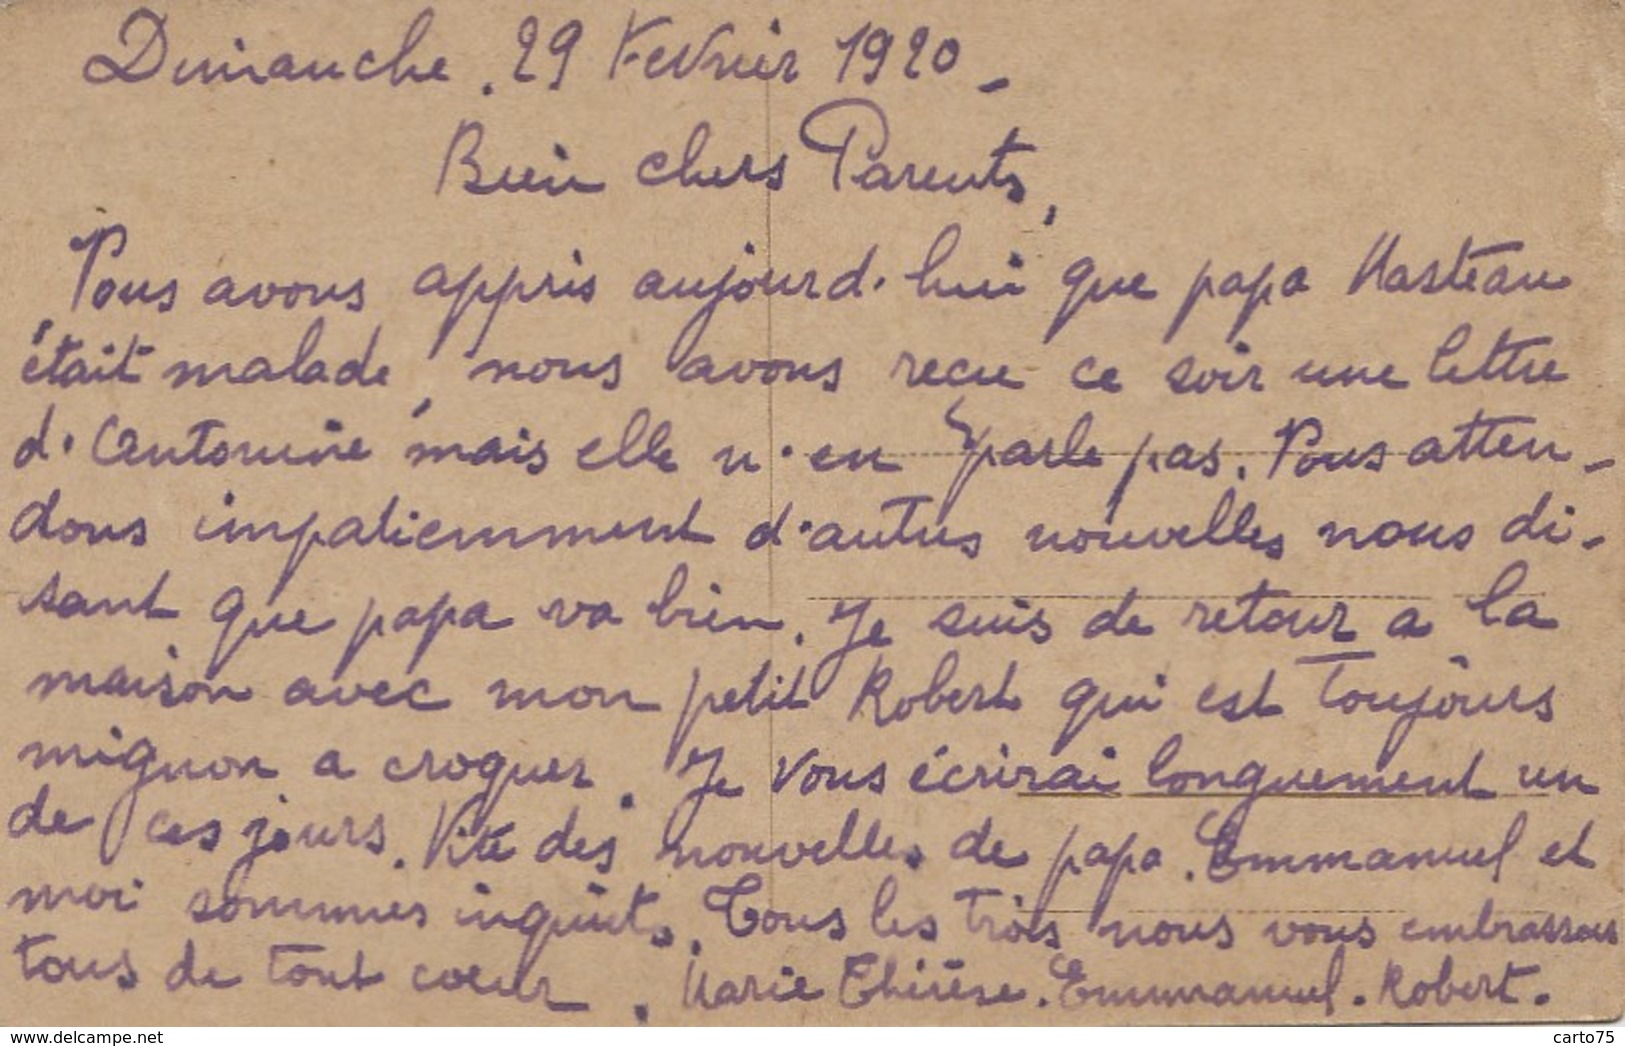 Dimanche. 29 Fevrier 1920 -
Bien chers Parents,
Nous avons appris aujourd'hui que papa Masteau
était malade, nous avons recu ce soir une lettre
d'Antonine mais elle n'en parle pas. Nous atten-
dons impatiemment d'autres nouvelles nous di-
sant que papa va bien. Je suis de retour a la
maison avec mon petit Robert qui est toujours
mignon a croquer. Je vous écrirai longuement un
de ces jours. Vite des nouvelles de papa. Emmanuel et
moi sommes inquiets. Tous les trois nous vous embrassons
tous de tout coeur. Marie Thérèse. Emmanuel. Robert.
http://www.delcampe.net
carto75